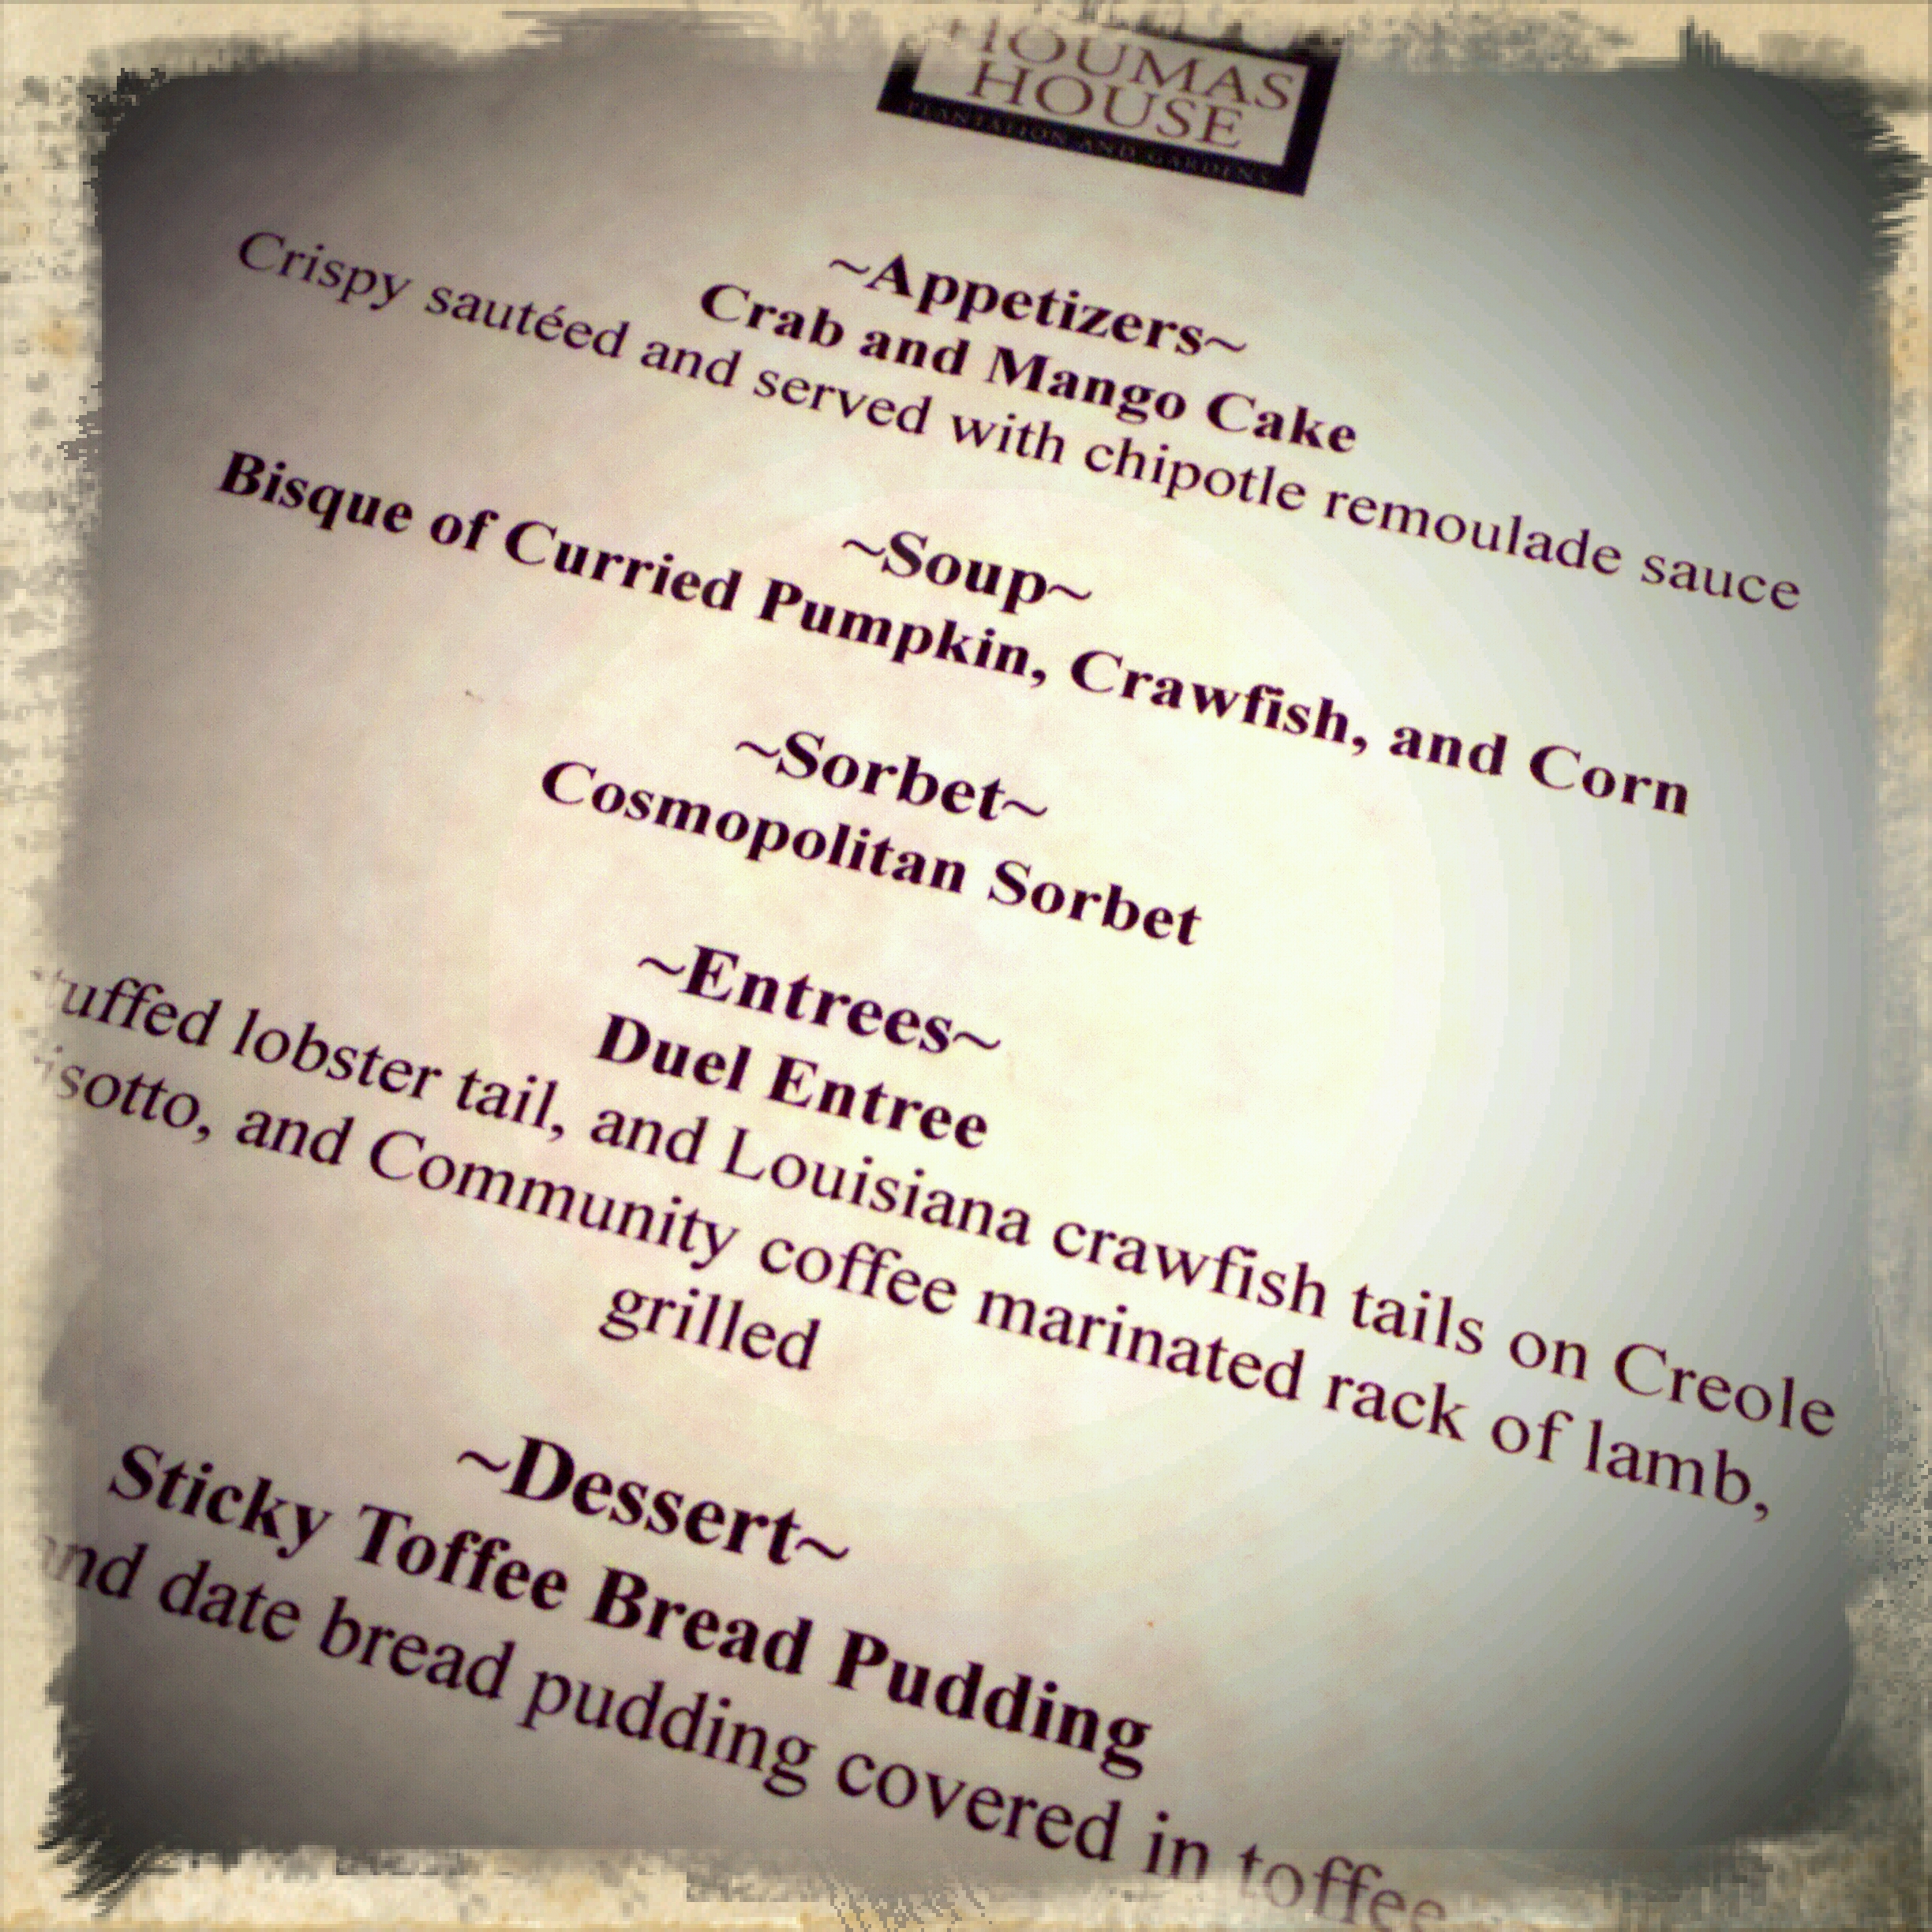 HOUMAS
HOUSE
PLANTATION AND GARDENS
~Appetizers~
Crab and Mango Cake
Crispy sautéed and served with chipotle remoulade sauce
~Soup~
Bisque of Curried Pumpkin, Crawfish, and Corn
~Sorbet~
Cosmopolitan Sorbet
~Entrees~
Duel Entree
tuffed lobster tail, and Louisiana crawfish tails on Creole
isotto, and Community coffee marinated rack of lamb,
grilled
~Dessert~
Sticky Toffee Bread Pudding
and date bread pudding covered in toffee